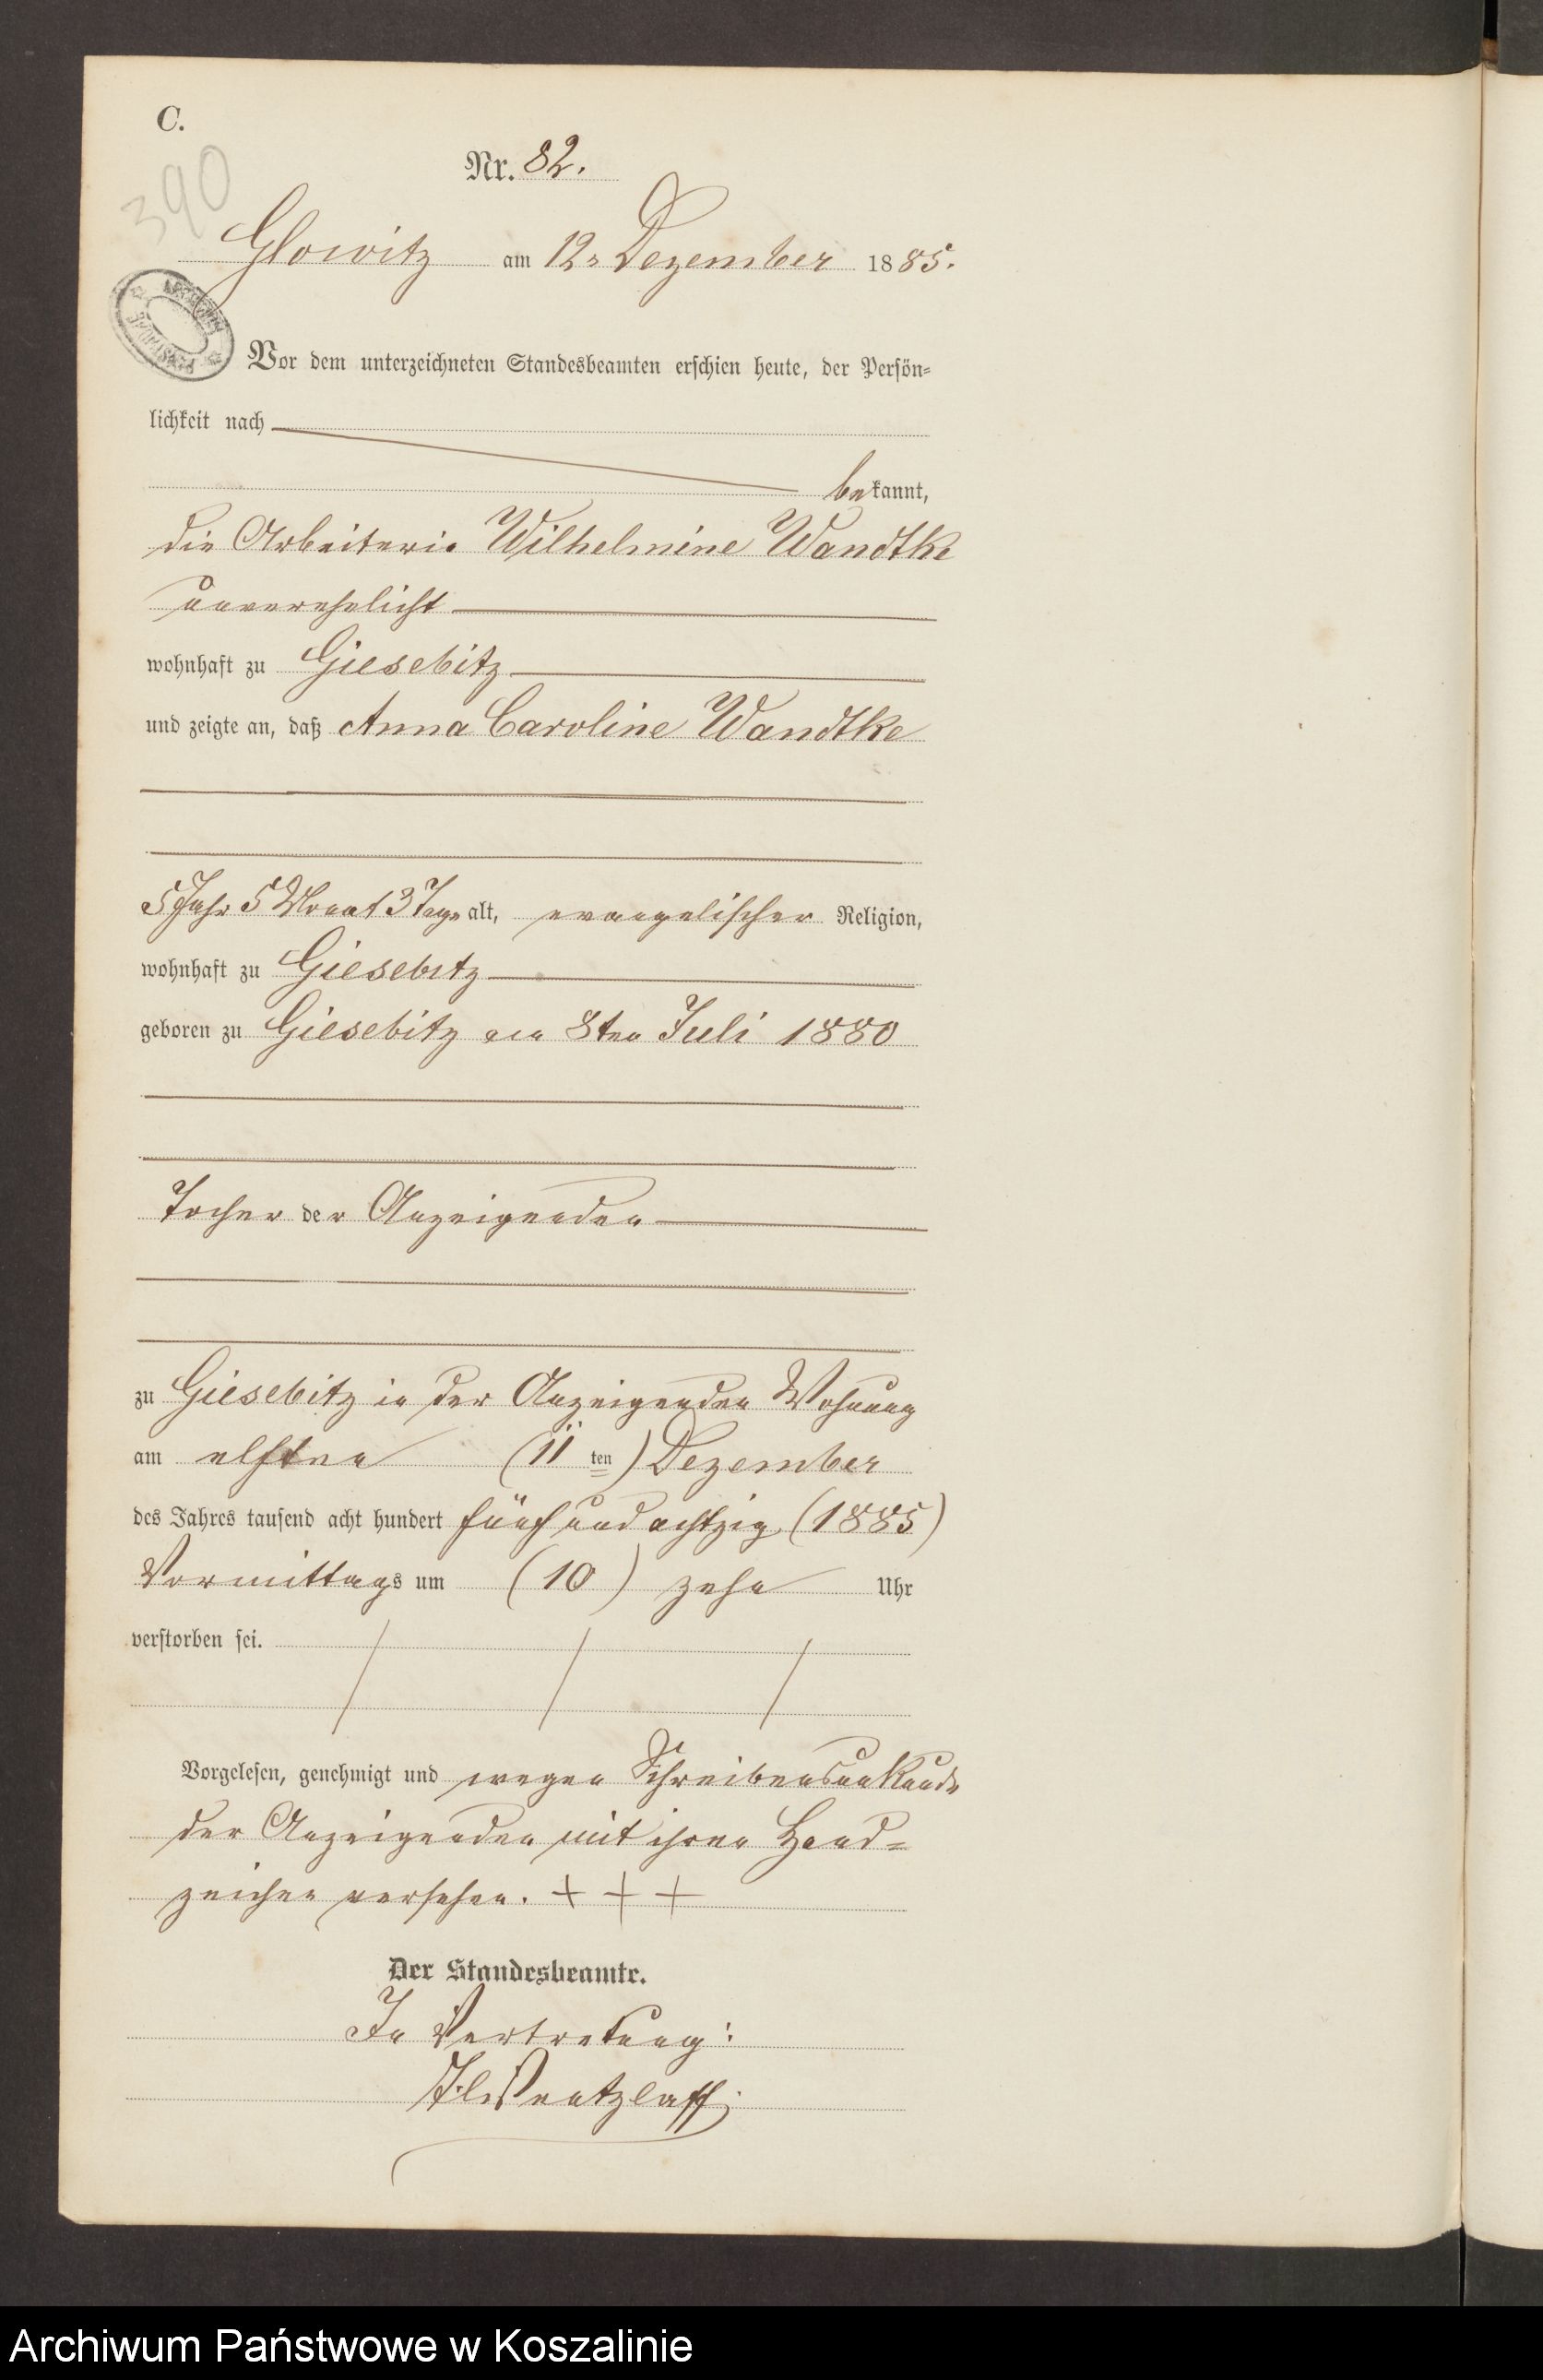 C.
390
Nr. 82.
Glowitz am 12. Dezember 1885.
Vor dem unterzeichneten Standesbeamten erschien heute, der Persön-
lichkeit nach
bekannt,
die Arbeiterin Wilhelmine Wandtke
unverehelicht
wohnhaft zu Giesebitz
und zeigte an, daß Anna Caroline Wandtke
5 Jahr 5 Monat 3 Tage alt, evangelischer Religion,
wohnhaft zu Giesebitz
geboren zu Giesebitz am 8ten Juli 1880
Tochter der Anzeigenden
zu Giesebitz in der Anzeigenden Wohnung
am elften (11 ten) Dezember
des Jahres tausend acht hundert fünf und achtzig (1885)
Vormittags um (10) zehn Uhr
verstorben sei.
Vorgelesen, genehmigt und wegen Schreibensunkunde
der Anzeigenden mit ihren Hand-
zeichen versehen. + + +
Der Standesbeamte.
In Vertretung:
Archiwum Państwowe w Koszalinie